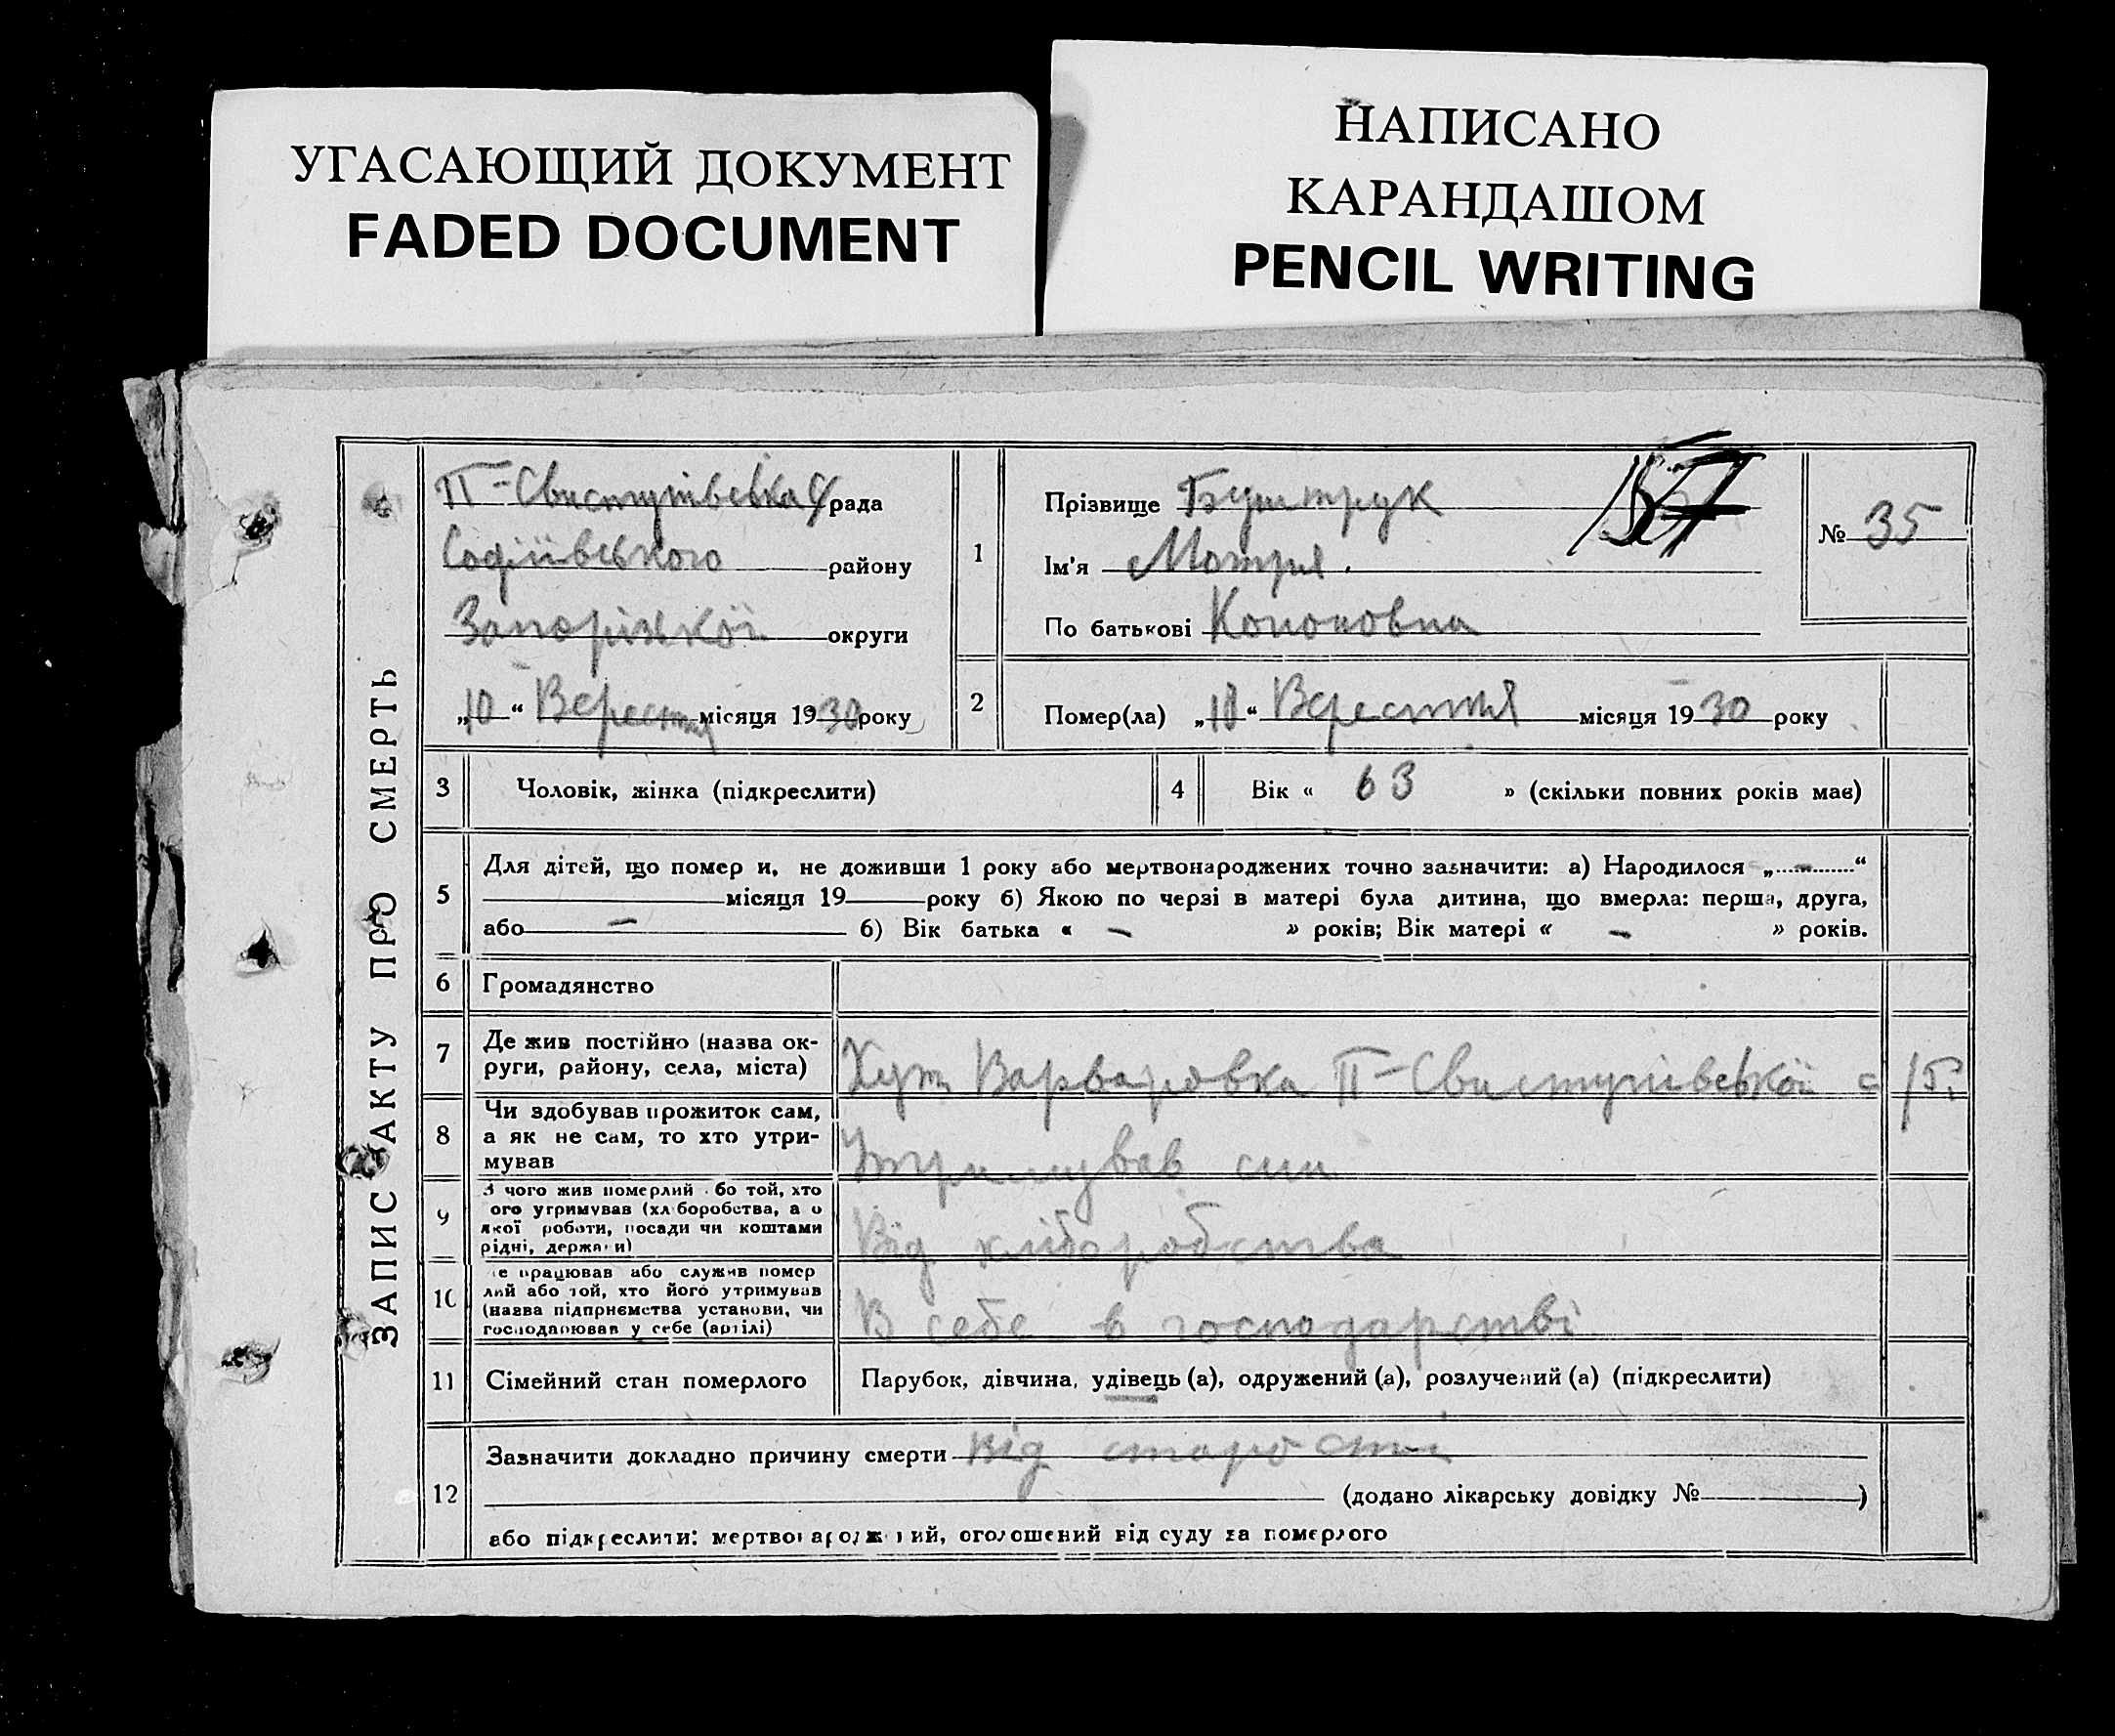 УГАСАЮЩИЙ ДОКУМЕНТ
FADED DOCUMENT
НАПИСАНО
КАРАНДАШОМ
PENCIL WRITING
ЗАПИС АКТУ ПРО СМЕРТЬ
П-Свистунівська с/рада
Софіївського району
Запоріжкої округи
„10“ Вересня місяця 1930 року
1
Прізвище
Ім'я Мотря.
По батькові Кононовна
№ 35
2
Помер(ла) „10“ Вересння місяця 1930 року
3 Чоловік, жінка (підкреслити)
4 Вік « 63 » (скільки повних років має)
5
Для дітей, що помер и, не доживши 1 року або мертвонароджених точно зазначити: а) Народилося „ - “
місяця 19 року б) Якою по черзі в матері була дитина, що вмерла: перша, друга,
або — б) Вік батька « — » років; Вік матері « — » років.
6 Громадянство
7 Де жив постійно (назва ок-
руги, району, села, міста)
Хут Варваровка П-Свистунівської с/р.
8 Чи здобував прожиток сам,
а як не сам, то хто утри-
мував
Утримував син
9 З чого жив померлий бо той, хто
ого утримував (хл боробства, а о
якої роботи, посади чи коштами
рідні, держа и)
Від хліборобства
10 е працював або служив помер
лий або той, хто його утримував
(назва підприємства установи, чи
господарював у себе (артілі)
В себе в господарстві
11 Сімейний стан померлого
Парубок, дівчина, удівець (а), одружений (а), розлучений (а) (підкреслити)
12
Зазначити докладно причину смерти Від старости
(додано лікарську довідку № )
або підкреслити: мертвонароджений, оголошений від суду за померлого